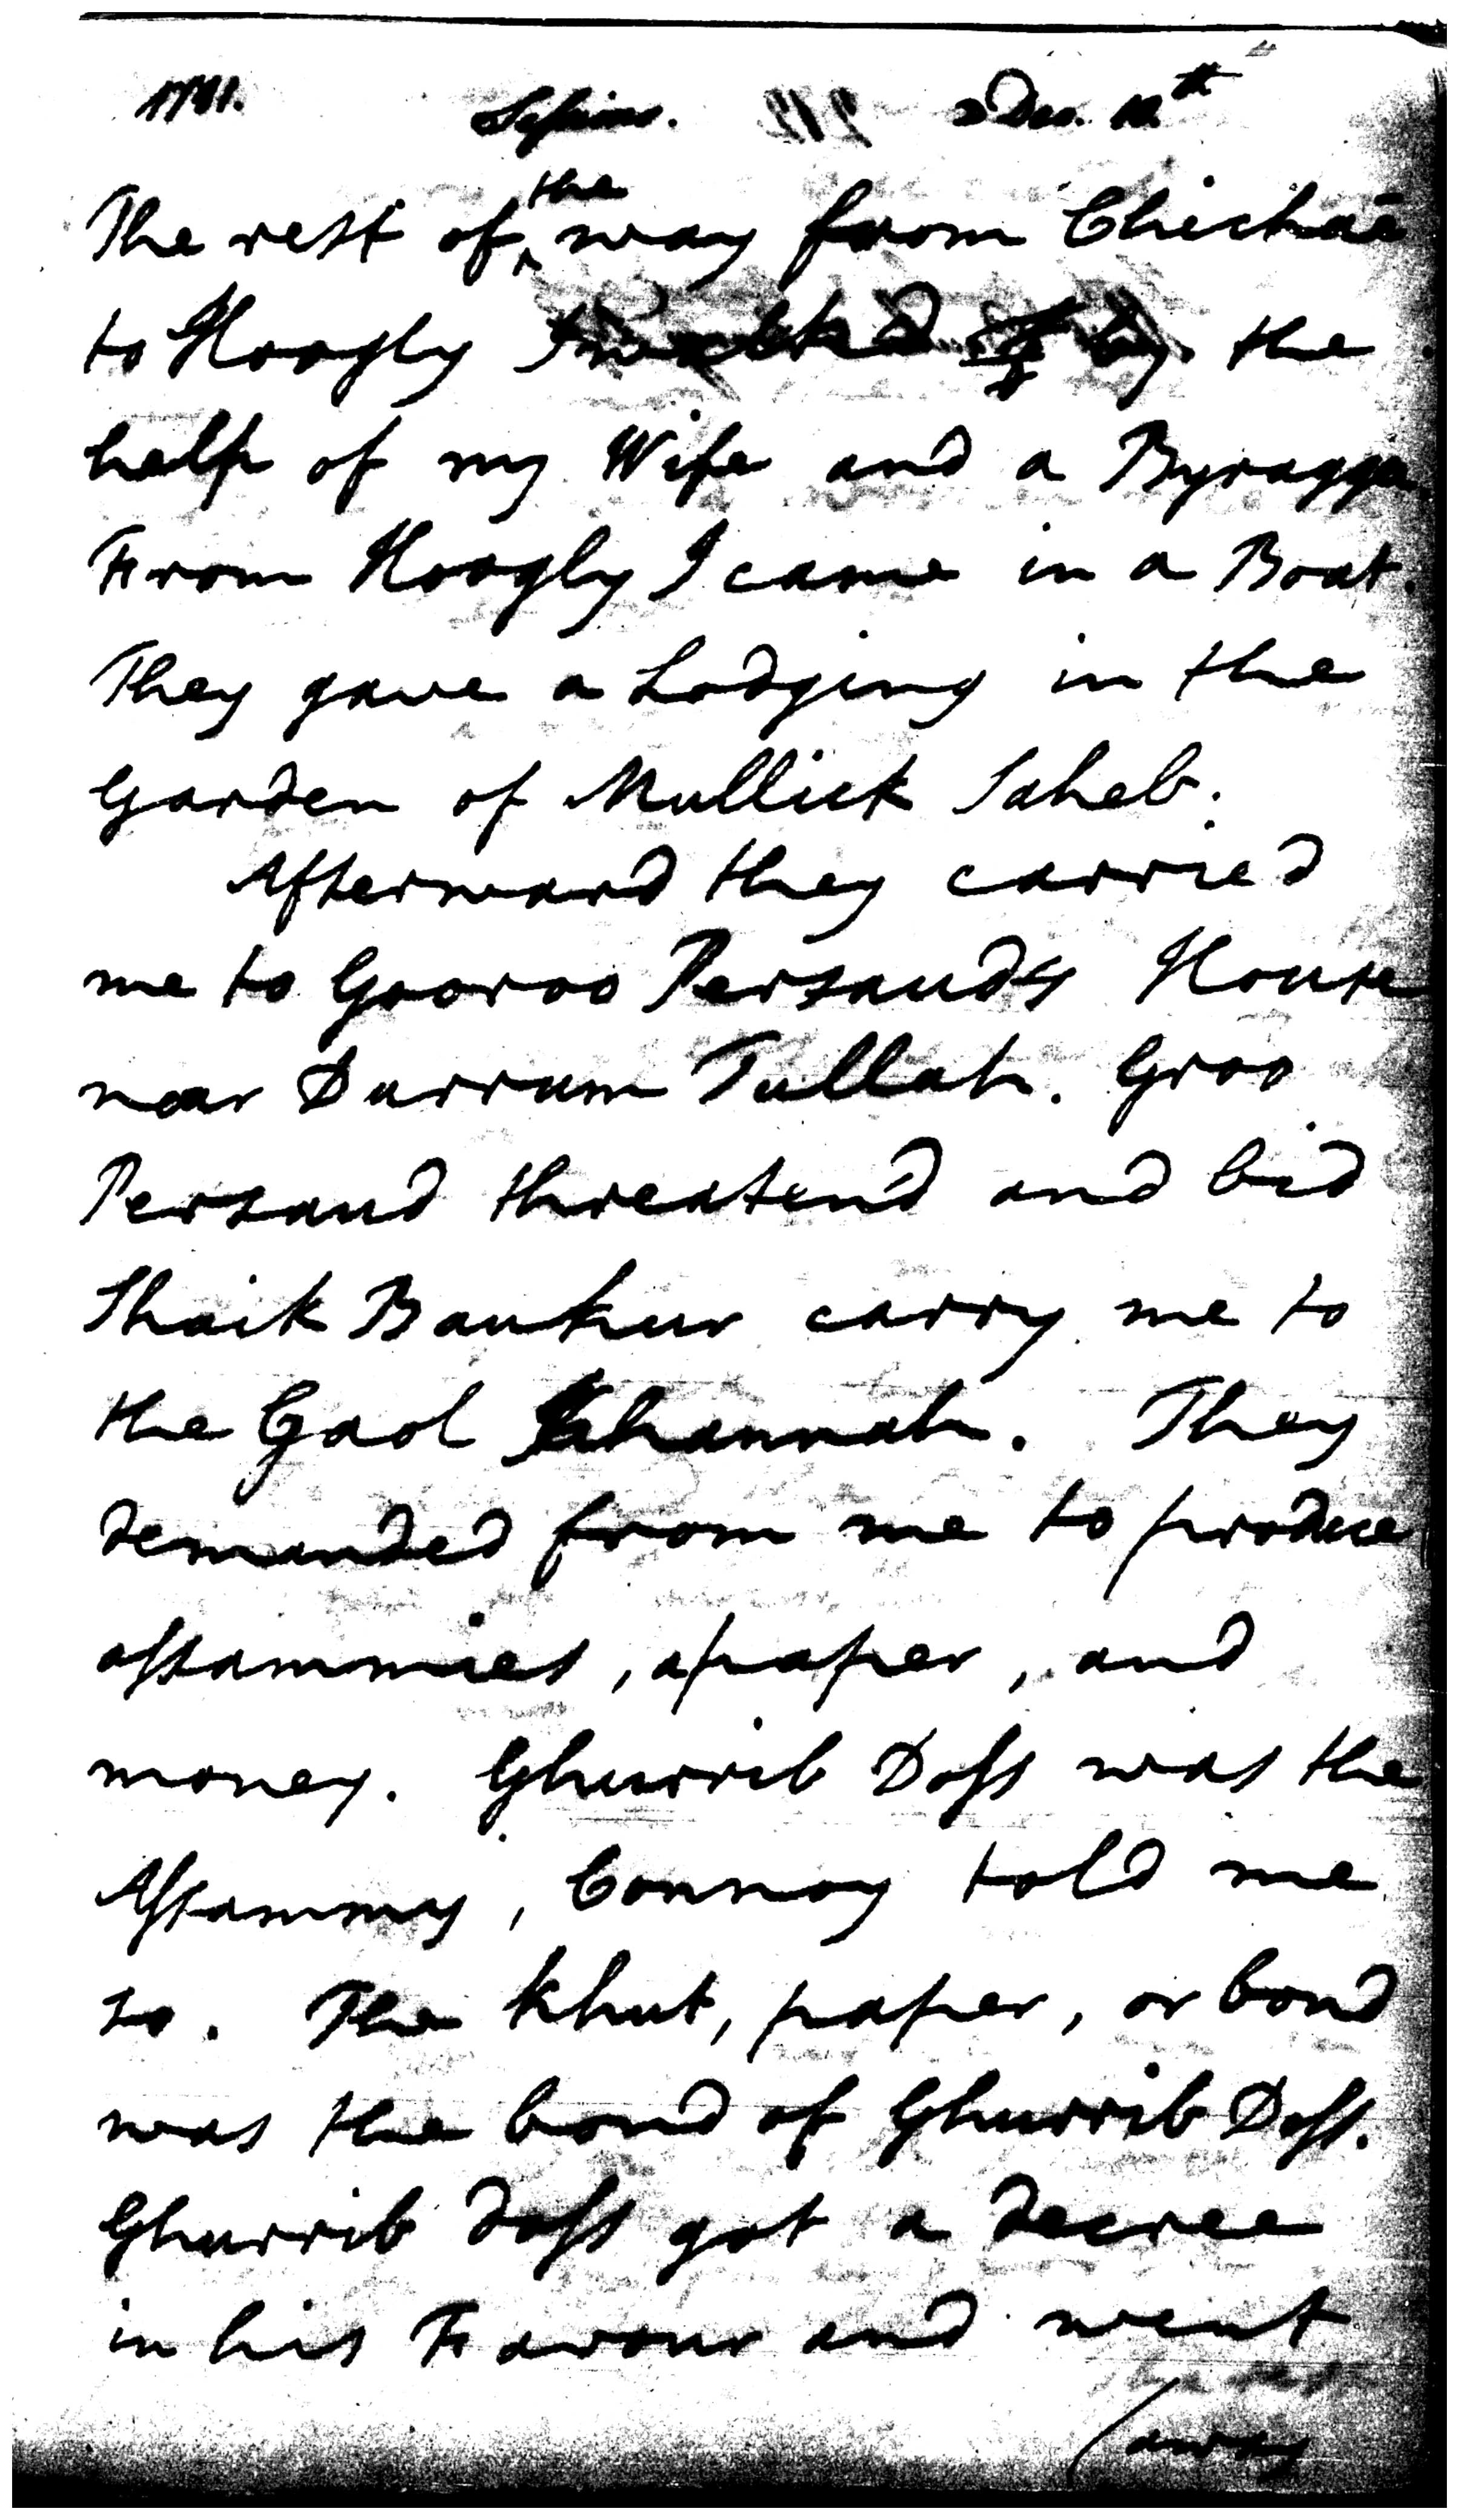 1781. Sessions. Dec. 10th
The rest of the way from Chichae
to Hoogly I walked by the
help of my Wife and a Byragge
From Hoogly I came in a Boat.
They gave a Lodging in the
Garden of Mullick Saheb.
Afterward they carried
me to Gooroo Persauds House
near Durrum Tullah. Groo
Persaud threaten'd and bid
Shaik Bankur carry me to
the Gaol Khannah. They
demanded from me to produce
assammies, a paper, and
money. Ghurrib Doss was the
Assammy, Connoy told me
so. The Khut, paper, or bond
was the bond of Ghurrib Doss.
Ghurrib doss got a decree
in his Favour and went
(away